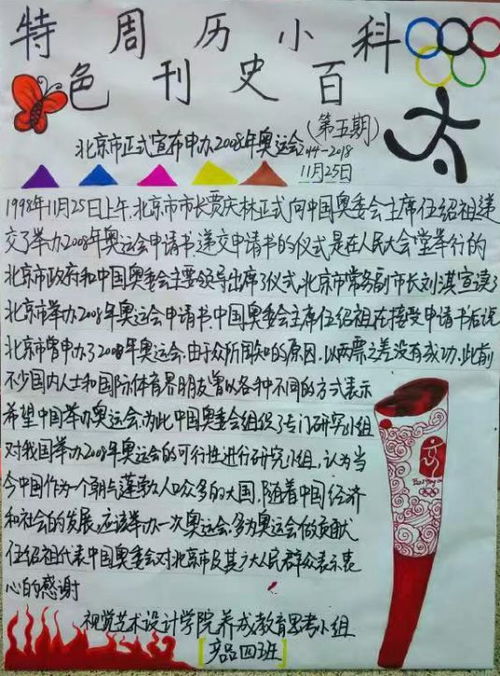 特周历小科
色刊史百
(第五期)
北京市正式宣布申办2008年奥运会244-2018
11月25日
1998年11月25日上午,北京市市长贾庆林正式向中国奥委会主席伍绍祖递
交了举办2008年奥运会申请书.递交申请书的仪式是在人民大会堂举行的
北京市政府和中国奥委会主要领导出席了仪式.北京市常务副市长刘淇宣读了
北京市举办2008年奥运会申请书.中国奥委会主席伍绍祖在接受申请书后说
北京市曾申办了2000年奥运会.由于众所周知的原因.以两票之差没有成功.此前
不少国内人士和国际体育界朋友曾以各种不同的方式表示
希望中国举办奥运会.为此中国奥委会组织了专门研究小组
对我国举办2008年奥运会的可行性进行研究小组,认为当
今中国作为一个朝气蓬勃人口众多的大国,随着中国经济
和社会的发展.应该举办一次奥运会,多为奥运会做贡献
伍绍祖代表中国奥委会对北京市及其广大人民群众表示衷
心的感谢
视觉艺术设计学院养成教育思考小组
[产品四班]